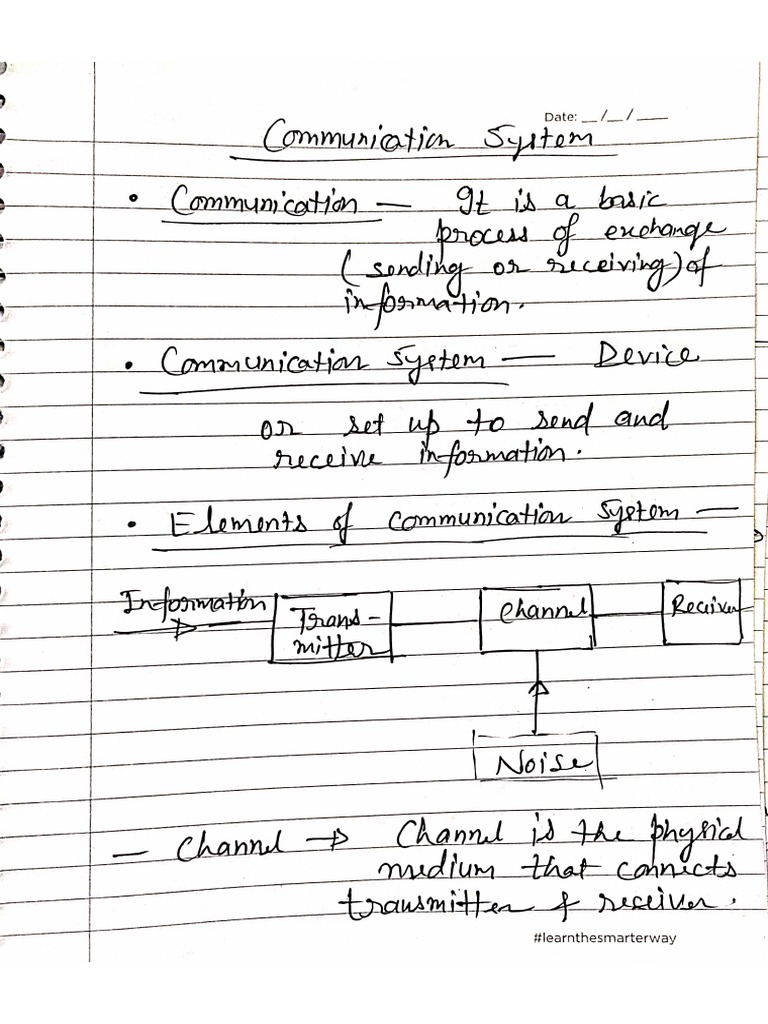 Date: __/__/___
Communication System
• Communication — It is a basic
process of exchange
(sending or receiving) of
information.
• Communication System — Device
or set up to send and
receive information.
• Elements of Communication System —
Information
Trans-
mitter
Channel
Receiver
Noise
— Channel → Channel is the physical
medium that connects
transmitter & receiver.
#learnthesmarterway